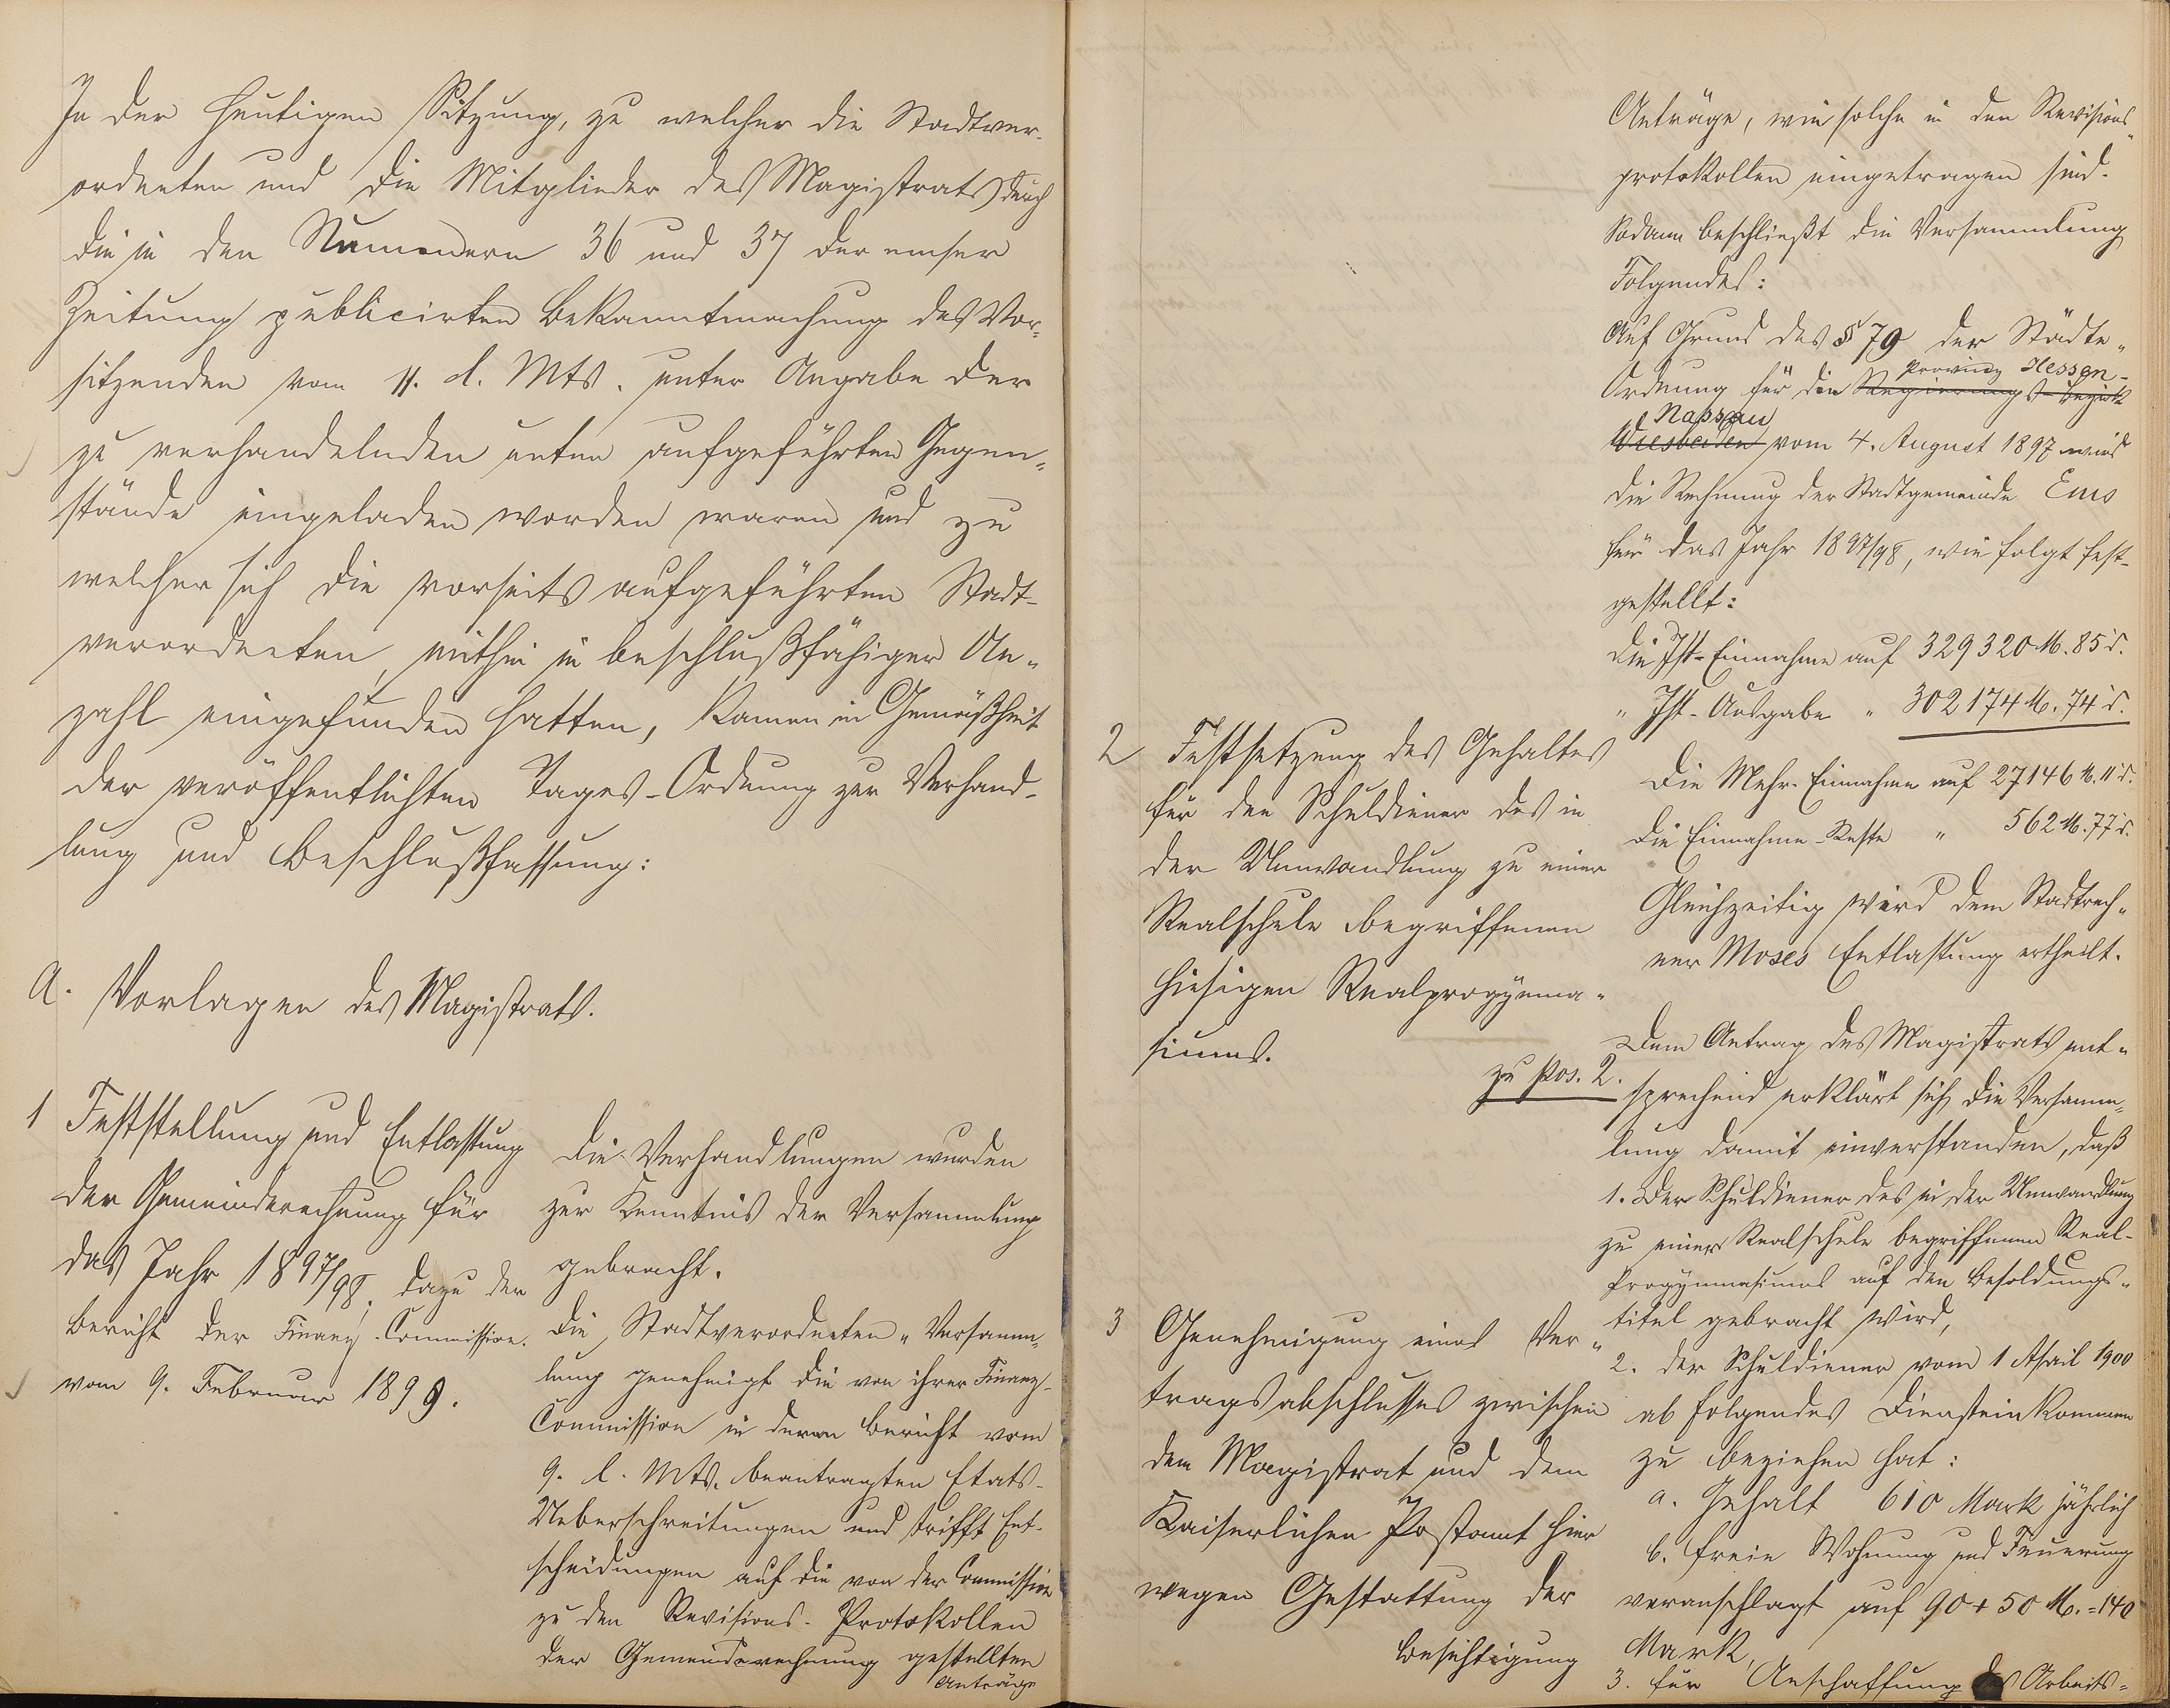 In der heutigen Sitzung, zu welcher die Stadtver-
ordneten und die Mitglieder des Magistrats durch
die in den Nummern 36 und 37 der emser
Zeitung publicirten Bekanntmachung des Vor-
sitzenden vom 11. d. Mts. unter Angabe der
zu verhandelnden unten aufgeführten Gegen-
stände eingeladen worden waren und zu
welcher sich die vorseits aufgeführten Stadt-
verordneten, mithin in beschlußfähiger An-
zahl eingefunden hatten, kamen in Gemäßheit
der veröffentlichten Tages-Ordnung zur Verhand-
lung und Beschlußfassung:
A. Vorlagen des Magistrats.
1 Feststellung und Entlastung
der Gemeinderechnung für
das Jahr 1897/98, dazu der
Bericht der Finanz-Commission
vom 9. Februar 1899.
Die Verhandlungen wurden
zur Kenntnis der Versammlung
gebracht.
Die Stadtverordneten-Versamm-
lung genehmigt die von ihrer Finanz-
Commission in deren Bericht vom
9. l. Mts. beantragten Etats-
Ueberschreitungen und trifft Ent-
scheidungen auf die von der Commission
zu den Revisions-Protokollen
der Gemeinderechnung gestellten
Anträge
Anträge, wie solche in den Revisions-
protokollen eingetragen sind.
Sodann beschließt die Versammlung
Folgendes:
Auf Grund des § 79 der Städte-
Ordnung für die Regierungs-Bezirk Provinz Hessen-
Wiesbaden Nassau vom 4. August 1897 wird
die Rechnung der Stadtgemeinde Ems
für das Jahr 1897/98, wie folgt fest-
gestellt:
die Ist-Einnahme auf 329320 M. 85 d.
" Ist-Ausgabe " 302174 M. 74 d.
Die Mehr-Einnahme auf 27146 M. 11 d.
Die Einnahme-Reste " 562 M. 77 d.
Gleichzeitig wird dem Stadtrech-
ner Moses Entlastung ertheilt.
2 Festsetzung des Gehaltes
für den Schuldiener des in
der Umwandlung zu einer
Realschule begriffenen
hiesigen Realprogymna-
siums.
zu Pos. 2.
Dem Antrag des Magistrats ent-
sprechend erklärt sich die Versamm-
lung damit einverstanden, daß
1. der Schuldiener des in der Umwandlung
zu einer Realschule begriffenen Real-
Progymnasiums auf den Besoldungs-
titel gebracht wird,
2. der Schuldiener vom 1 April 1900
ab folgendes Diensteinkommen
zu beziehen hat:
a. Gehalt 610 Mark jährlich
b. freie Wohnung und Feuerung
veranschlagt auf 90 + 50 M. = 140
Mark,
3. für Anschaffung des Arbeits-
3 Genehmigung eines Ver-
tragsabschlusses zwischen
dem Magistrat und dem
Kaiserlichen Postamt hier
wegen Gestattung der
Besichtigung